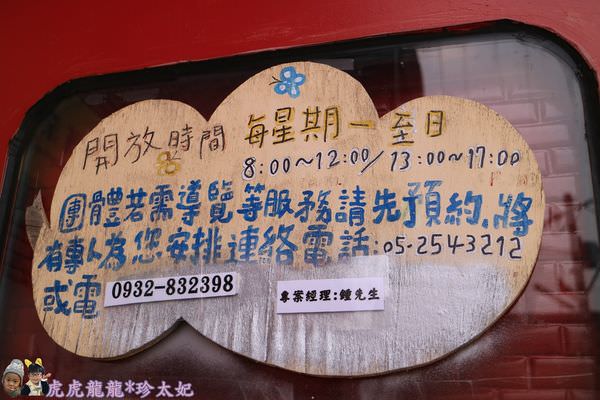 開放時間 每星期一至日
8:00~12:00/13:00~17:00
團體若需導覽等服務請先預約,將
有專人為您安排連絡電話:05-2543212
或電 0932-832398
專案經理:鍾先生
虎虎龍龍*珍太妃